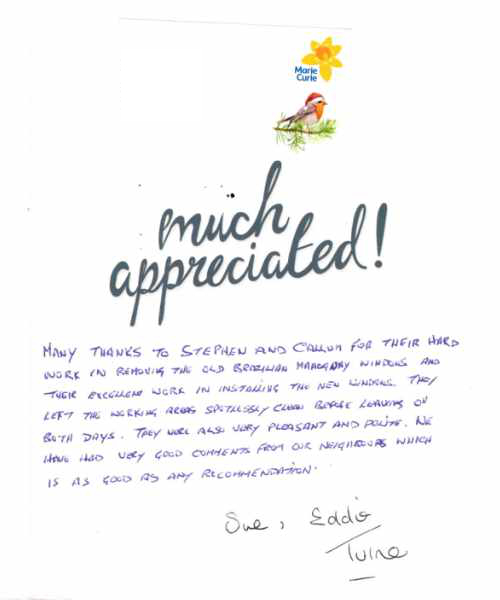 Marie
Curie
much
appreciated!
MANY THANKS TO STEPHEN AND CALLUM FOR THEIR HARD
WORK IN REMOVING THE OLD BRAZILIAN MAHOGANY WINDOWS AND
THEIR EXCELLENT WORK IN INSTALLING THE NEW WINDOWS. THEY
LEFT THE WORKING AREAS SPOTLESSLY CLEAN BEFORE LEAVING ON
BOTH DAYS. THEY WERE ALSO VERY PLEASANT AND POLITE. WE
HAVE HAD VERY GOOD COMMENTS FROM OUR NEIGHBOURS WHICH
IS AS GOOD AS ANY RECOMMENDATION.
Sue, Eddie